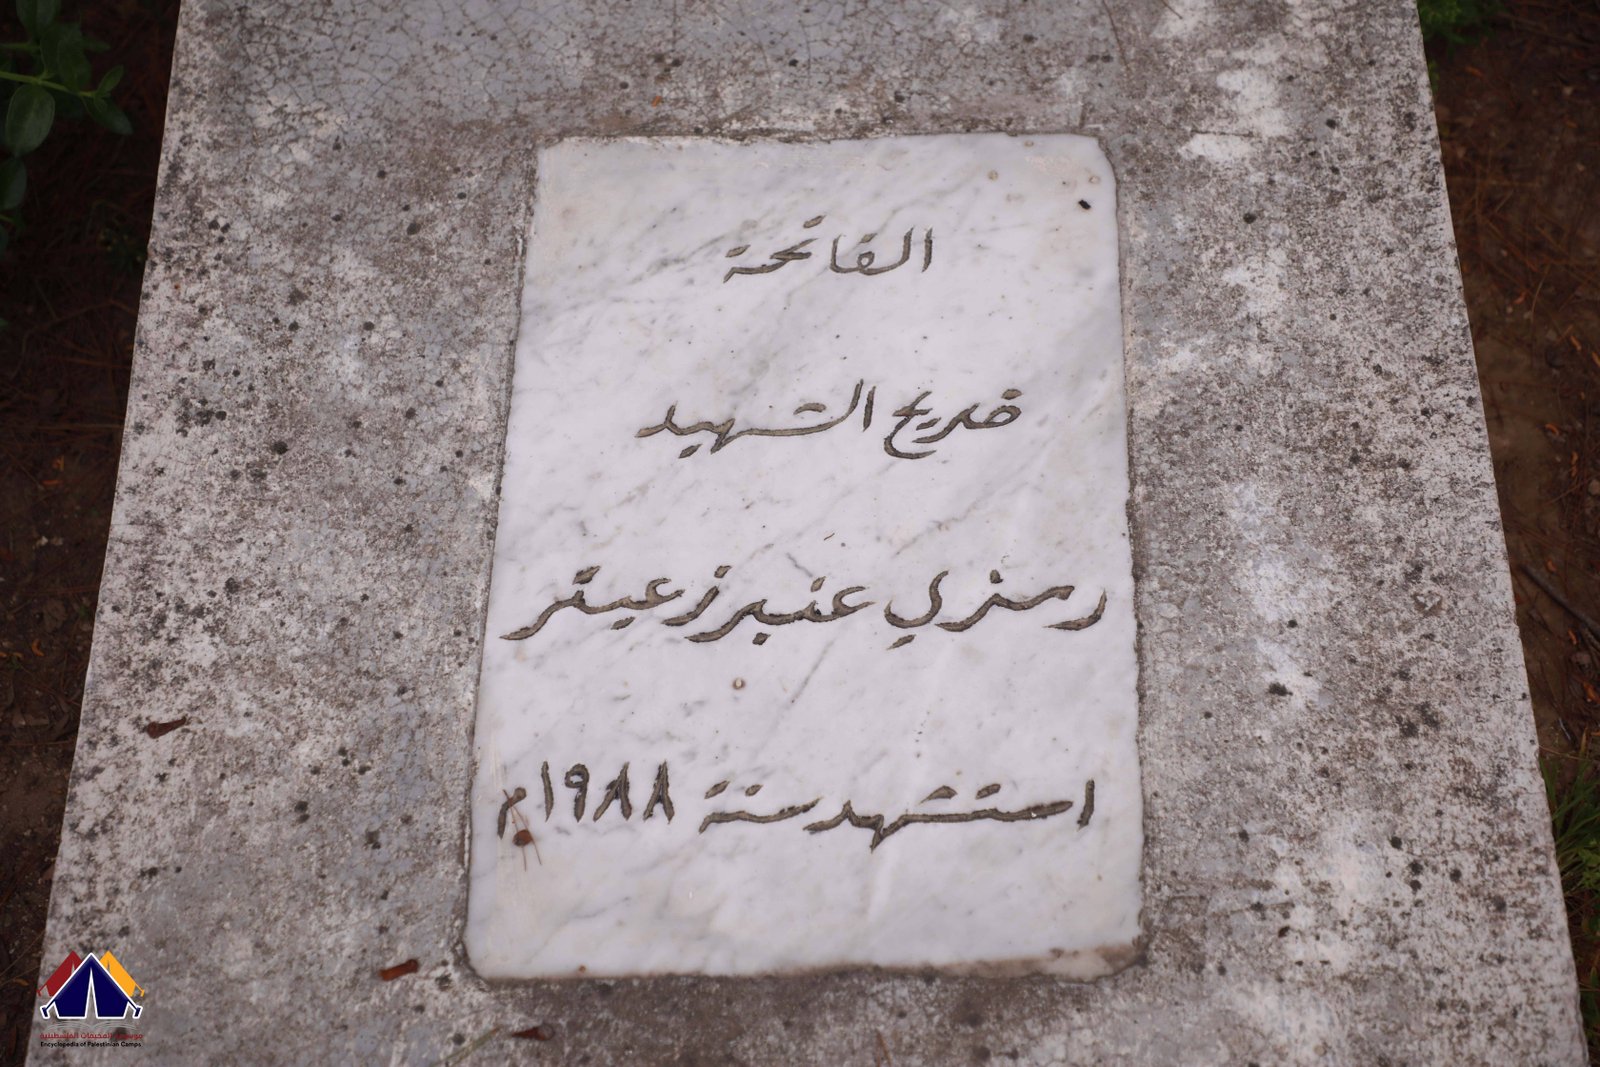 الفاتحة
ضريح الشهيد
رمزي عنبر زعيتر
استشهد سنة ١٩٨٨م
موسوعة المخيمات الفلسطينية
Encyclopedia of Palestinian Camps